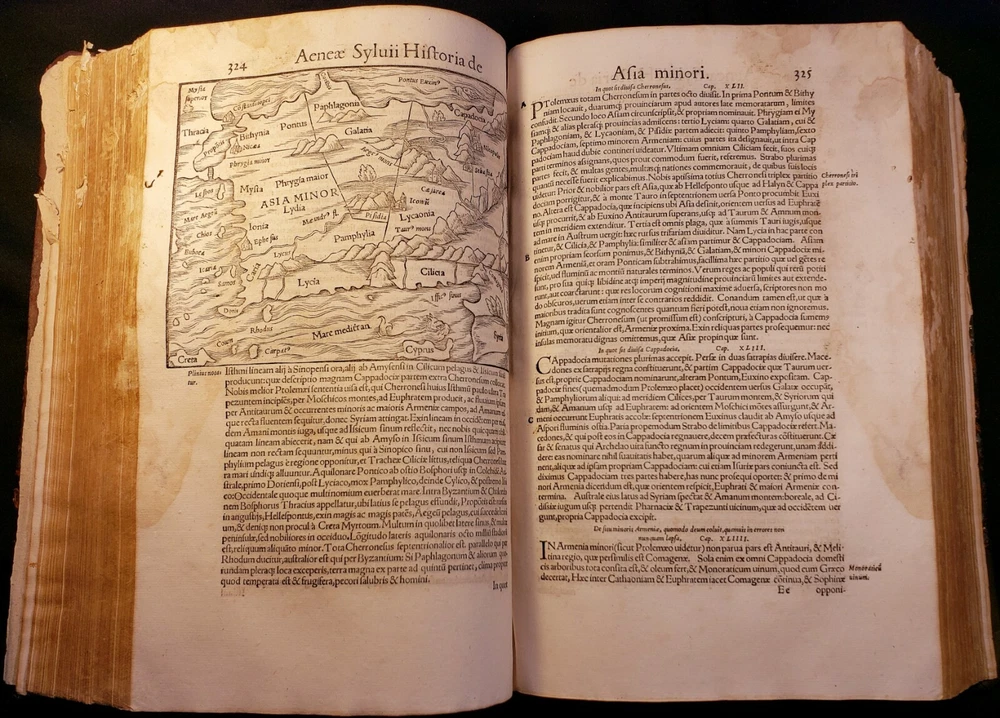 324
Aeneæ Syluii Historia de
Mysia superior
Constantinop.
Pontus Euxin⁹
Paphlagonia
Cappadocia
Thracia
Bithynia
Pontus
Galatia
Nicæa
Phrygia minor
Lesbos
Mysia
Phrygia maior
ASIA MINOR
Lydia
Cæsarea
Iconiũ
Mare Aegeũ
Chios
Ionia
Mæander fl.
Pisidia
Lycaonia
Taur⁹ mons
Ephesus
Pamphylia
Icaria
Samos
Lycia
Cilicia
Issic⁹ sinus
Doris
Rhodus
Mare mediterran.
Syria
Coum
Creta
Carpat⁹
Cyprus
Isthmi lineam alij à Sinopensi ora, alij ab Amysensi in Cilicum pelagus & Issicum sinum
producunt: quæ descriptio magnam Cappadociæ partem extra Cherronesum collocat.
Nobis melior Ptolemæi sententia uisa est, qui Cherronesi huius Isthmũ paulo ultra Tra
pezuntem incipiẽs, per Moschicos montes, ad Euphratem producit, ac fluuium ipsum
per Antitaurum & occurrentes minoris ac maioris Armeniæ campos, ad Amanum us
que recta fluentem sequitur, donec Syriam attingat. Exin lineam in occidentem per ui
dem Amani montis iuga, usque ad Issicum sinum reflectit, nec nobis quicquam eius
quatam lineam abiecerit, nam & qui ab Amyso in Issicum sinum Isthmum accipiunt
lineam non rectam sequuntur, minus qui à Sinopico sinu, cui non Issicum sed Pam
phylium pelagus è regione opponitur, et Tracheæ Ciliciæ littus, reliqua Cherronesus
ra mari undiq; alluuntur. Aquilonare Pontico ab ostio Bosphori usq; in Colchos. Au
strale, primo Doriensi, post Lyciaco, mox Pamphylico, deinde Cylico, & postremo Issi
co: Occidentale quoque multi nomium euerberat mare. Intra Byzantium & Chalcedo
nem Bosphorus Thracius appellatur, ubi latius se pelagus effundit, Propõtis est: rursus
in angustijs, Hellespontus, exin magis ac magis patẽs, Aegæũ pelagus, cui succedit
um, & deniq; non procul à Creta Myrtoum. Multum in quolibet latere sinus, & multæ
peninsulæ, sed nobiliores in occiduo. Lõgitudo lateris aquilonaris octo millia stadiorũ
est, reliquum aliquãto minor. Tota Cherronesus septentrionalior est, parallelo qui per
Rhodum ducitur, australior est qui per Byzantium: Si Paphlagonum & aliorum quo
rundam pleraq; loca exceperis, terra magna ex parte ad quintũ pertinet, climo proper
quod temperata est & frugifera, pecori salubris & homini.
In quot
Plinius uocatur.
Asia minori.
325
In quot sit diuisa Cherronesus, Cap. XLII.
A
PTolemæus totam Cherronesum in partes octo diuisit. In prima Pontum & Bithy
niam locauit, duarumq; prouinciarum apud autores late memoratarum, limites
confudit. Secundo loco Asiam circunscripsit, & propriam nominauit. Phrygiam et My
siamq; & alias plerasq; prouincias admiscens: tertio Lyciam: quarto Galatiam, cui &
Paphlagoniam, & Lycaoniam, & Pisidiæ partem adiecit: quinto Pamphyliam, sexto
Cappadociam, septimo minorem Armeniam: cuius partes ita designauit, ut intra Cap
padociam haud dubie contineri uideatur. Vltimam omnium Ciliciam fecit, suos cuiq;
parti terminos assignans, quos prout commodum fuerit, referemus. Strabo plurimas
partes fecit, & multas gentes, multasq; nationes commemorauit, de quibus suis locis
quantũ necesse fuerit explicabimus. Nobis aptissima totius Cherronesi triplex partitio
uidetur: Prior & nobilior pars est Asia, quæ ab Hellesponto usque ad Halyn & Cappa
dociam porrigitur, & à monte Tauro in septentrionem uersa Ponto procumbit Euxi
no. Altera est Cappadocia, quæ incipiens ubi Asia desinit, orientem uersus ad Euphratẽ
usq; procurrit, & ab Euxino Antitaurum superans, usq; ad Taurum & Amnum mon-
tem in meridiem extenditur. Tertia est omnis plaga, quæ à summis Tauri iugis, usque
ad mare in Austrum uergit: hæc rursus trifariam diuiditur. Nam Lycia in hac parte con
tinetur, & Cilicia, & Pamphylia: similiter & asiam partimur & Cappadociam. Asiam
B
enim propriam seorsum ponimus, & Bithyniã, & Galatiam, & minori Cappadociæ mi-
norem Armeniã, et oram Ponticam subtrahimus, facillima hæc partitio quæ uel gẽtes re
spicit, uel fluminũ ac montiũ naturales terminos. Verum reges ac populi qui rerũ potiti
sunt, pro sua quisq; libidine atq; imperij magnitudine prouinciarũ limites aut extende-
runt, aut coarctarunt: quæ res locorum cognitioni maxime aduersa, scriptores non mo
do obscuros, uerum etiam inter se contrarios reddidit. Conandum tamen est, ut quæ à
maioribus tradita sunt cognoscentes quantum fieri potest, noua etiam non ignoremus.
Magnam igitur Cherronesum (ut promissum est) conscripturi, à Cappadocia sumemo
initium, quæ orientalior est, Armeniæ proxima. Exin reliquas partes prosequemur: nec
insulas memoratu dignas omittemus, quæ Asiæ propinquæ sunt.
Cherronesi tri
plex partitio.
In quot sit diuisa Cappadocia, Cap. XLIII.
CAppadocia mutationes plurimas accepit. Persæ in duas satrapias diuisere. Mace-
dones ex satrapijs regna constituerunt, & partim Cappadociæ quæ Taurum uer-
sus est, propriæ Cappadociam nominarunt, alteram Pontum, Euxino proximam. Cap-
padociæ fines (quemadmodum Ptolemæo placet) occidentem uersus Galatæ occupãt,
& Pamphyliorum aliqui: ad meridiem Cilices, per Taurum montem, & Syriorum qui
dam, & Amanum usq; ad Euphratem: ad orientem Moschici mõtes assurgunt, & Ar-
C
meni occurrunt Euphratis accolæ: septentrionem Euxinus claudit ab Amyso usque ad
Aspori fluminis ostia. Paria propemodum Strabo de limitibus Cappadociæ refert. Ma-
cedones, & qui post eos in Cappadocia regnauere, decem præfecturas cõstituerunt. Cæ
sar & senatus qui Archelao uita functo regnum in prouinciam redegerunt, unam addi-
dere: eas nominare nihil suauitatis haber, quarum aliquæ ad minorem Armeniam perti
nent, aliquæ ad ipsam propriam Cappadociam: cui etiam Isauriæ pars coniuncta est. Sed
diximus Cappadociam tres partes habere, has nunc prosequi oportet: & primo de mi
nori Armenia dicendum est, quæ orientem respicit, Euphrati & maiori Armeniæ con-
termina. Australe eius latus ad Syriam spectat & Amanum montem: boreale, ad Ci-
dissiæ iugum usq; pertendit Pharnaciæ & Trapezunti uicinum, quæ ad occidẽtem uer
gunt, propria Cappadocia excipit.
De situ minoris Armeniæ, quomodo deum coluit, quamuis in errores non
nunquam lapsa, Cap. XLIIII.
IN Armenia minori (sicut Ptolemæo uidetur) non parua pars est Antitauri, & Meli-
tina regio, quæ persimilis est Comagenæ. Sola enim ex omni Cappadocia domesti
cis arboribus tota consita est, & oleum fert, & Monoraticum uinum, quod cum Græco
decertat, Hæc inter Cathaoniam & Euphratem iacet Comagenæ cõtinua, & Sophinæ
Monoraticũ
uinum.
Ee
opponi-